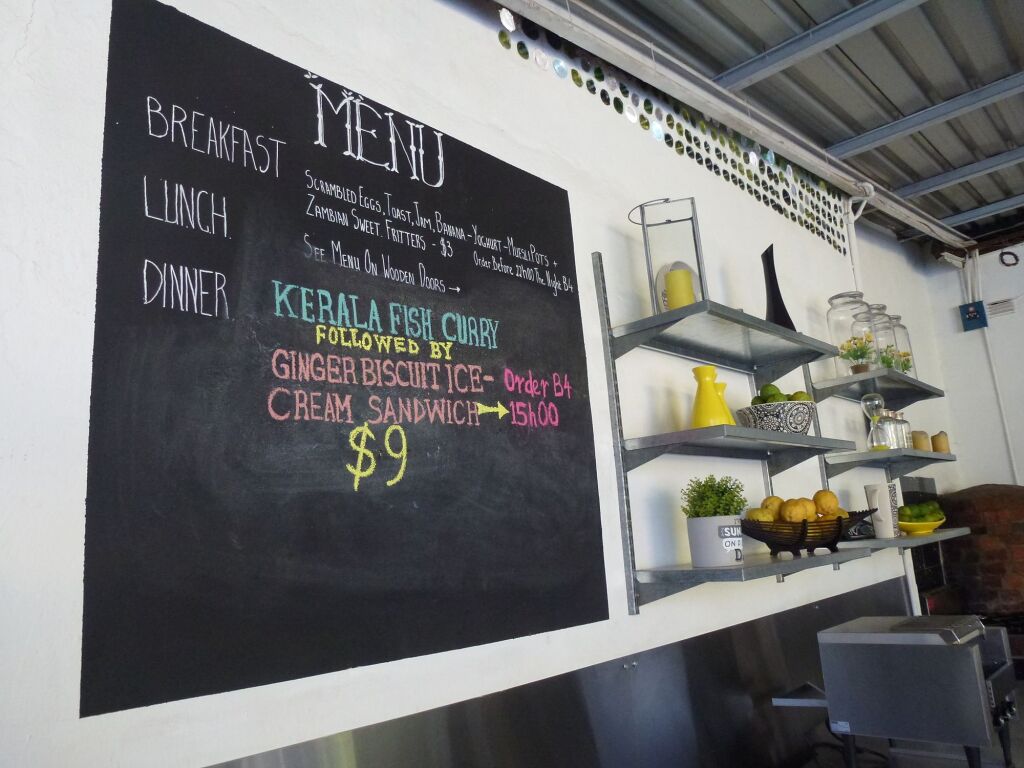 MENU
BREAKFAST
SCRAMBLED EGGS, TOAST, JAM, BANANA - YOGHURT - MUESLI POTS +
ZAMBIAN SWEET FRITTERS - $3
Order Before 22h00 The Night B4
LUNCH
SEE MENU ON WOODEN DOORS →
DINNER
KERALA FISH CURRY
FOLLOWED BY
GINGER BISCUIT ICE-
CREAM SANDWICH →
Order B4
15h00
$9
SUN
ON
D